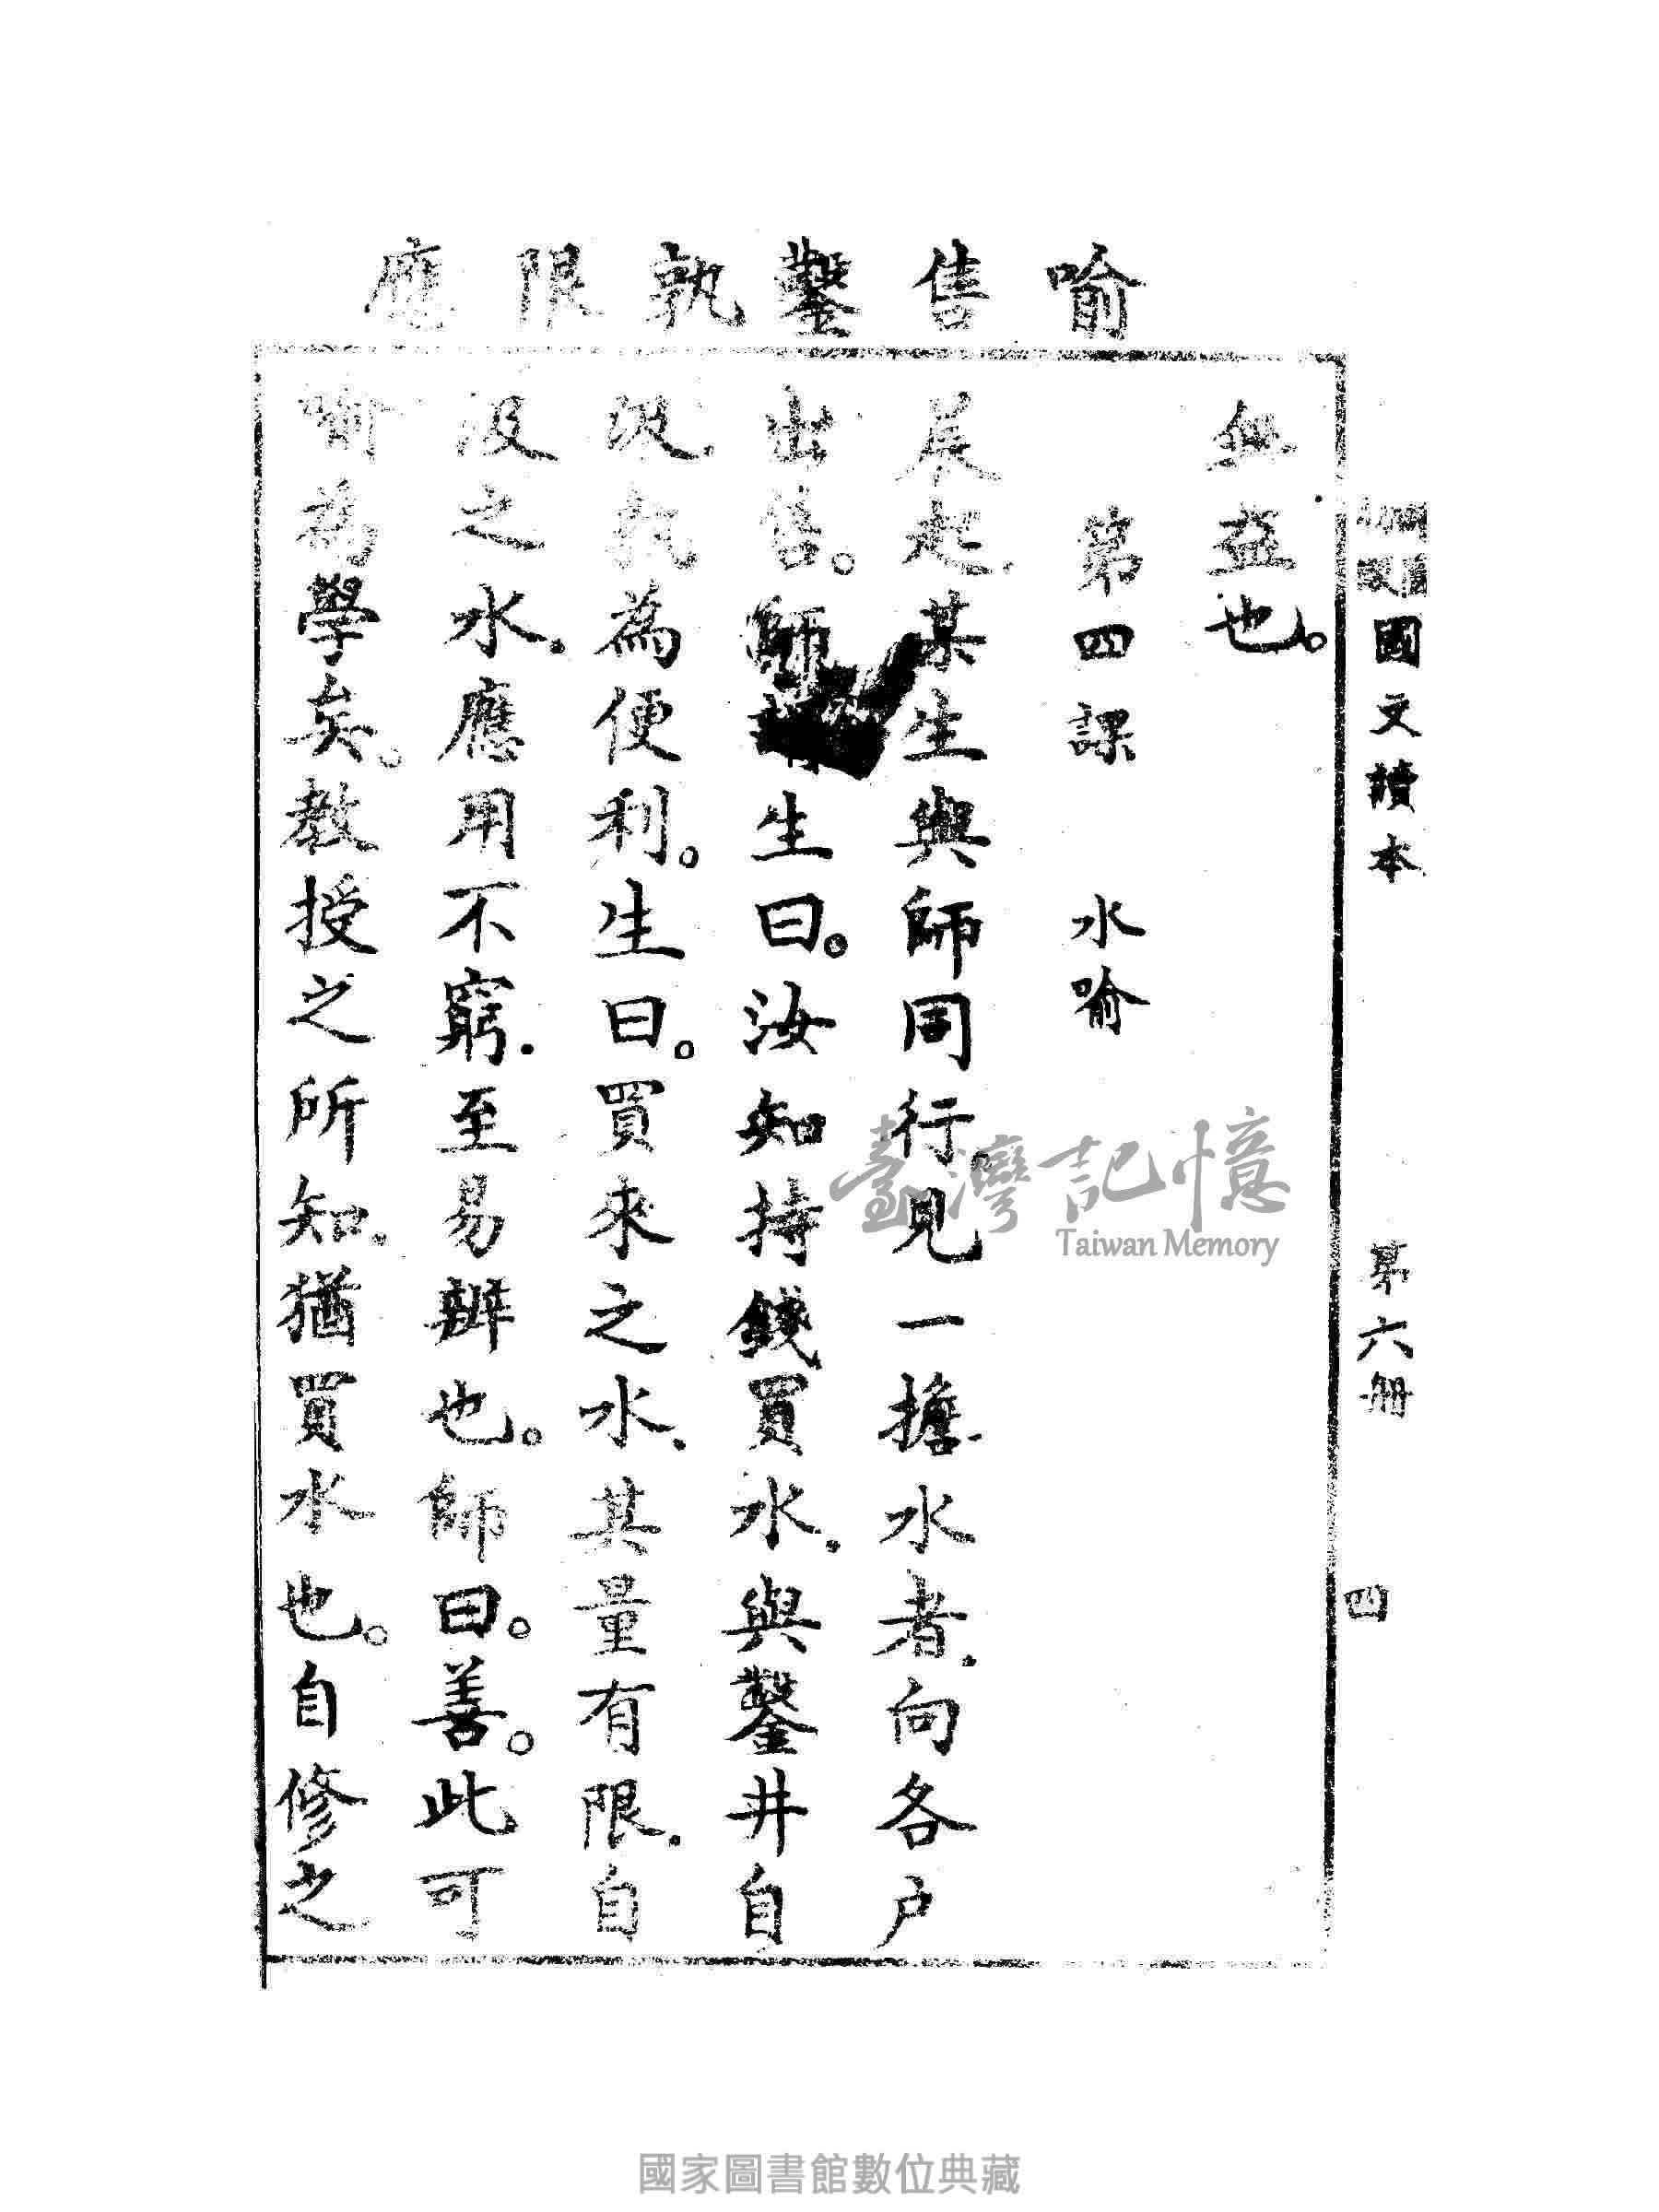 國文讀本 第六册 四
喻 售 鑿 孰 限 應
無益也。
第四課 水喻
晨起.某生與師同行.見一擔水者.向各户
出售。師 生曰。汝知持錢買水.與鑿井自
汲.孰為便利。生曰。買來之水.其量有限.自
汲之水.應用不窮.至易辨也。師曰。善。此可
喻為學矣。教授之所知.猶買水也。自修之
臺灣記憶
Taiwan Memory
國家圖書館數位典藏